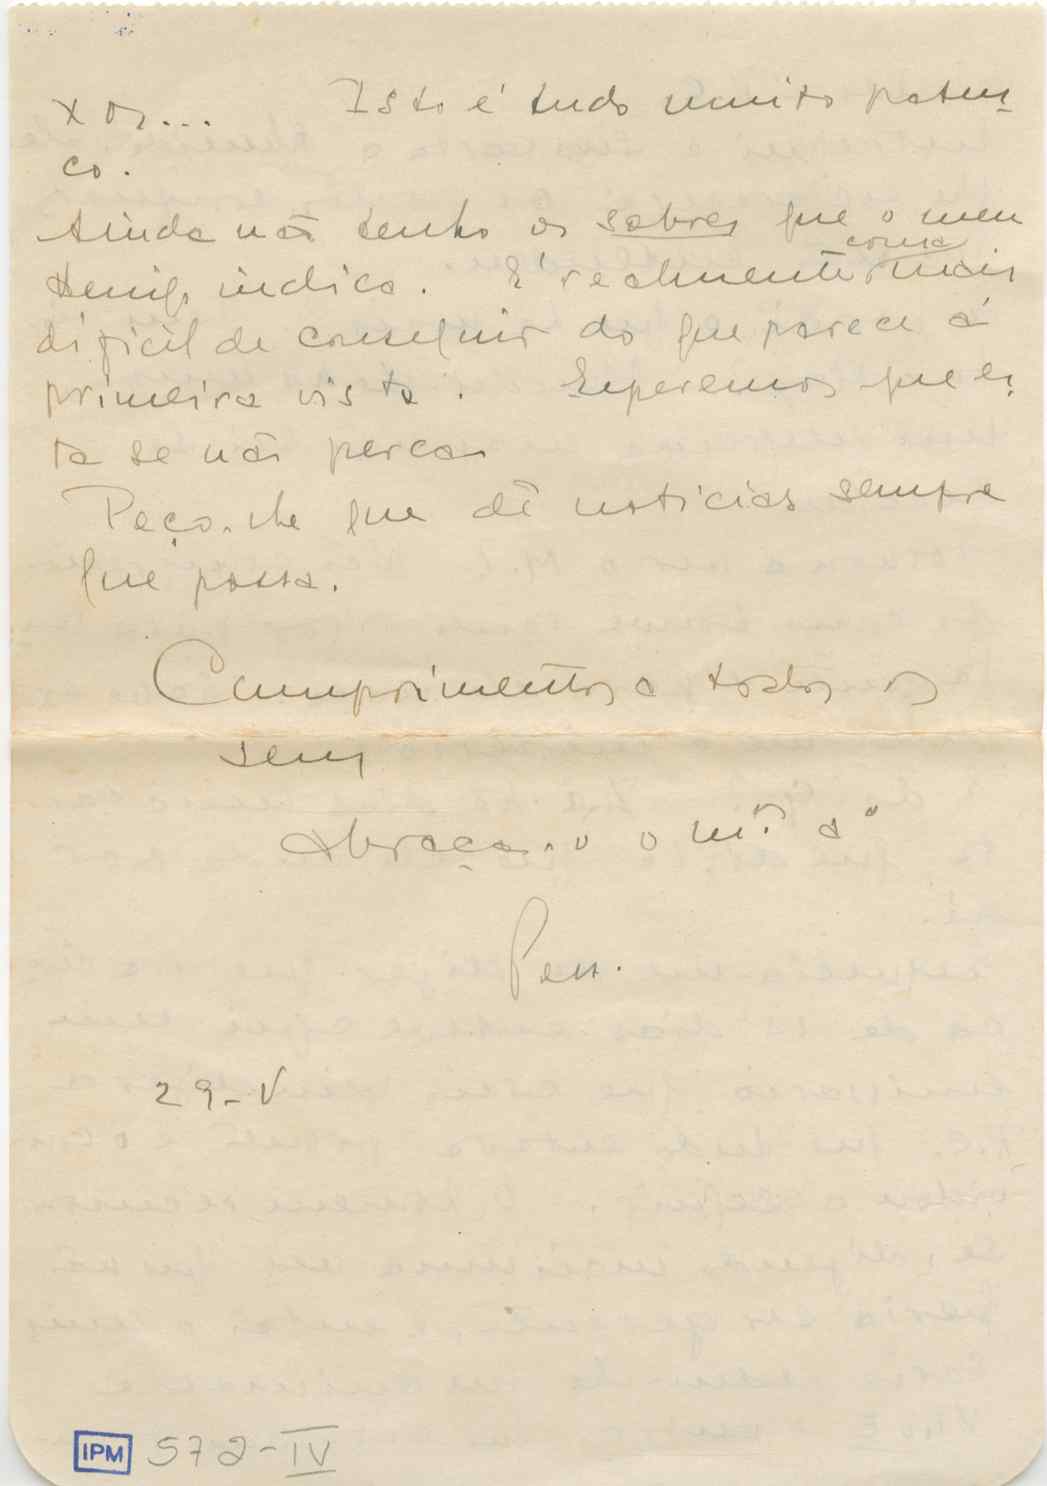 xos... Isto é tudo muito paten-
co.
Ainda não tenho os sabres que o meu
Amigo indica. É realmente coisa mais
dificil de conseguir do que parece á
primeira vista. Esperemos que es-
ta se não perca
Peço-lhe que dê noticias sempre
que possa.
Cumprimentos a todos os
seus
Abraça-o o m.to a.o
Pess.
29-V
IPM 572-IV